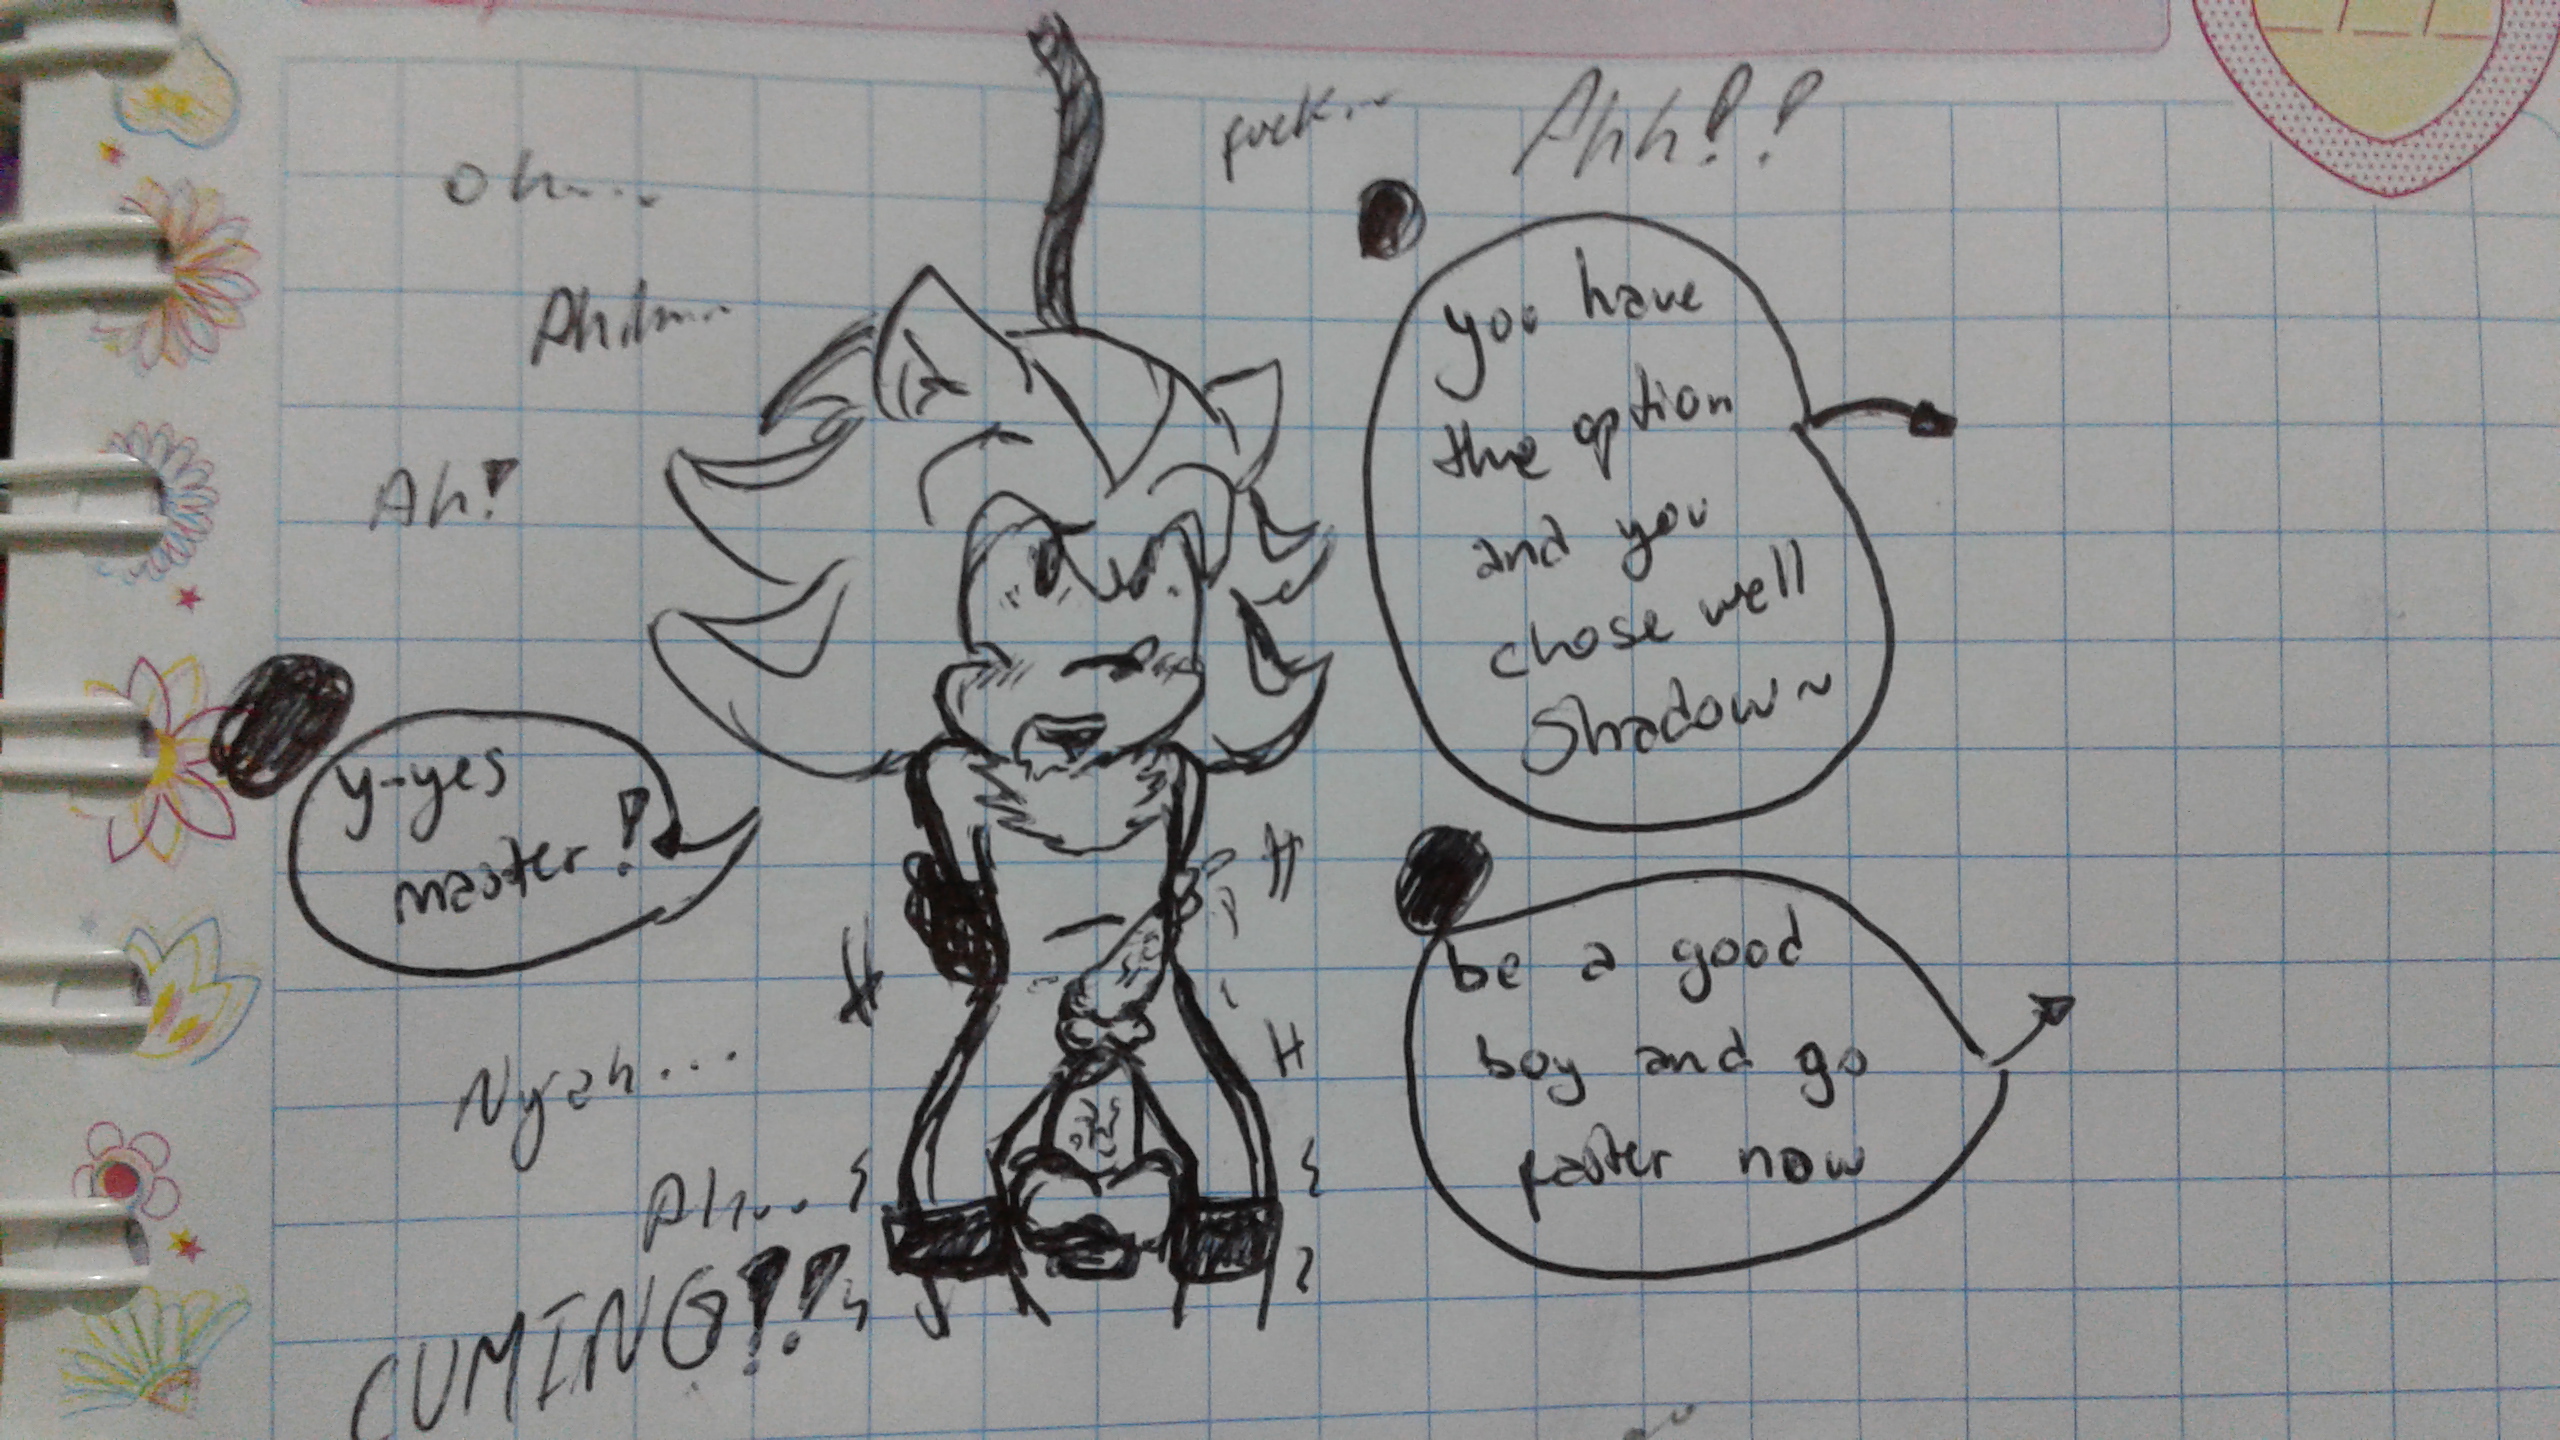 oh....
fuck..~
Ahh!!
Ahhh....
Ah!
you have
the option
and you
chose well
Shadow~
y-yes
master!
H
H
H
be a good
boy and go
faster now
Nyah...
Ah...
CUMING!!